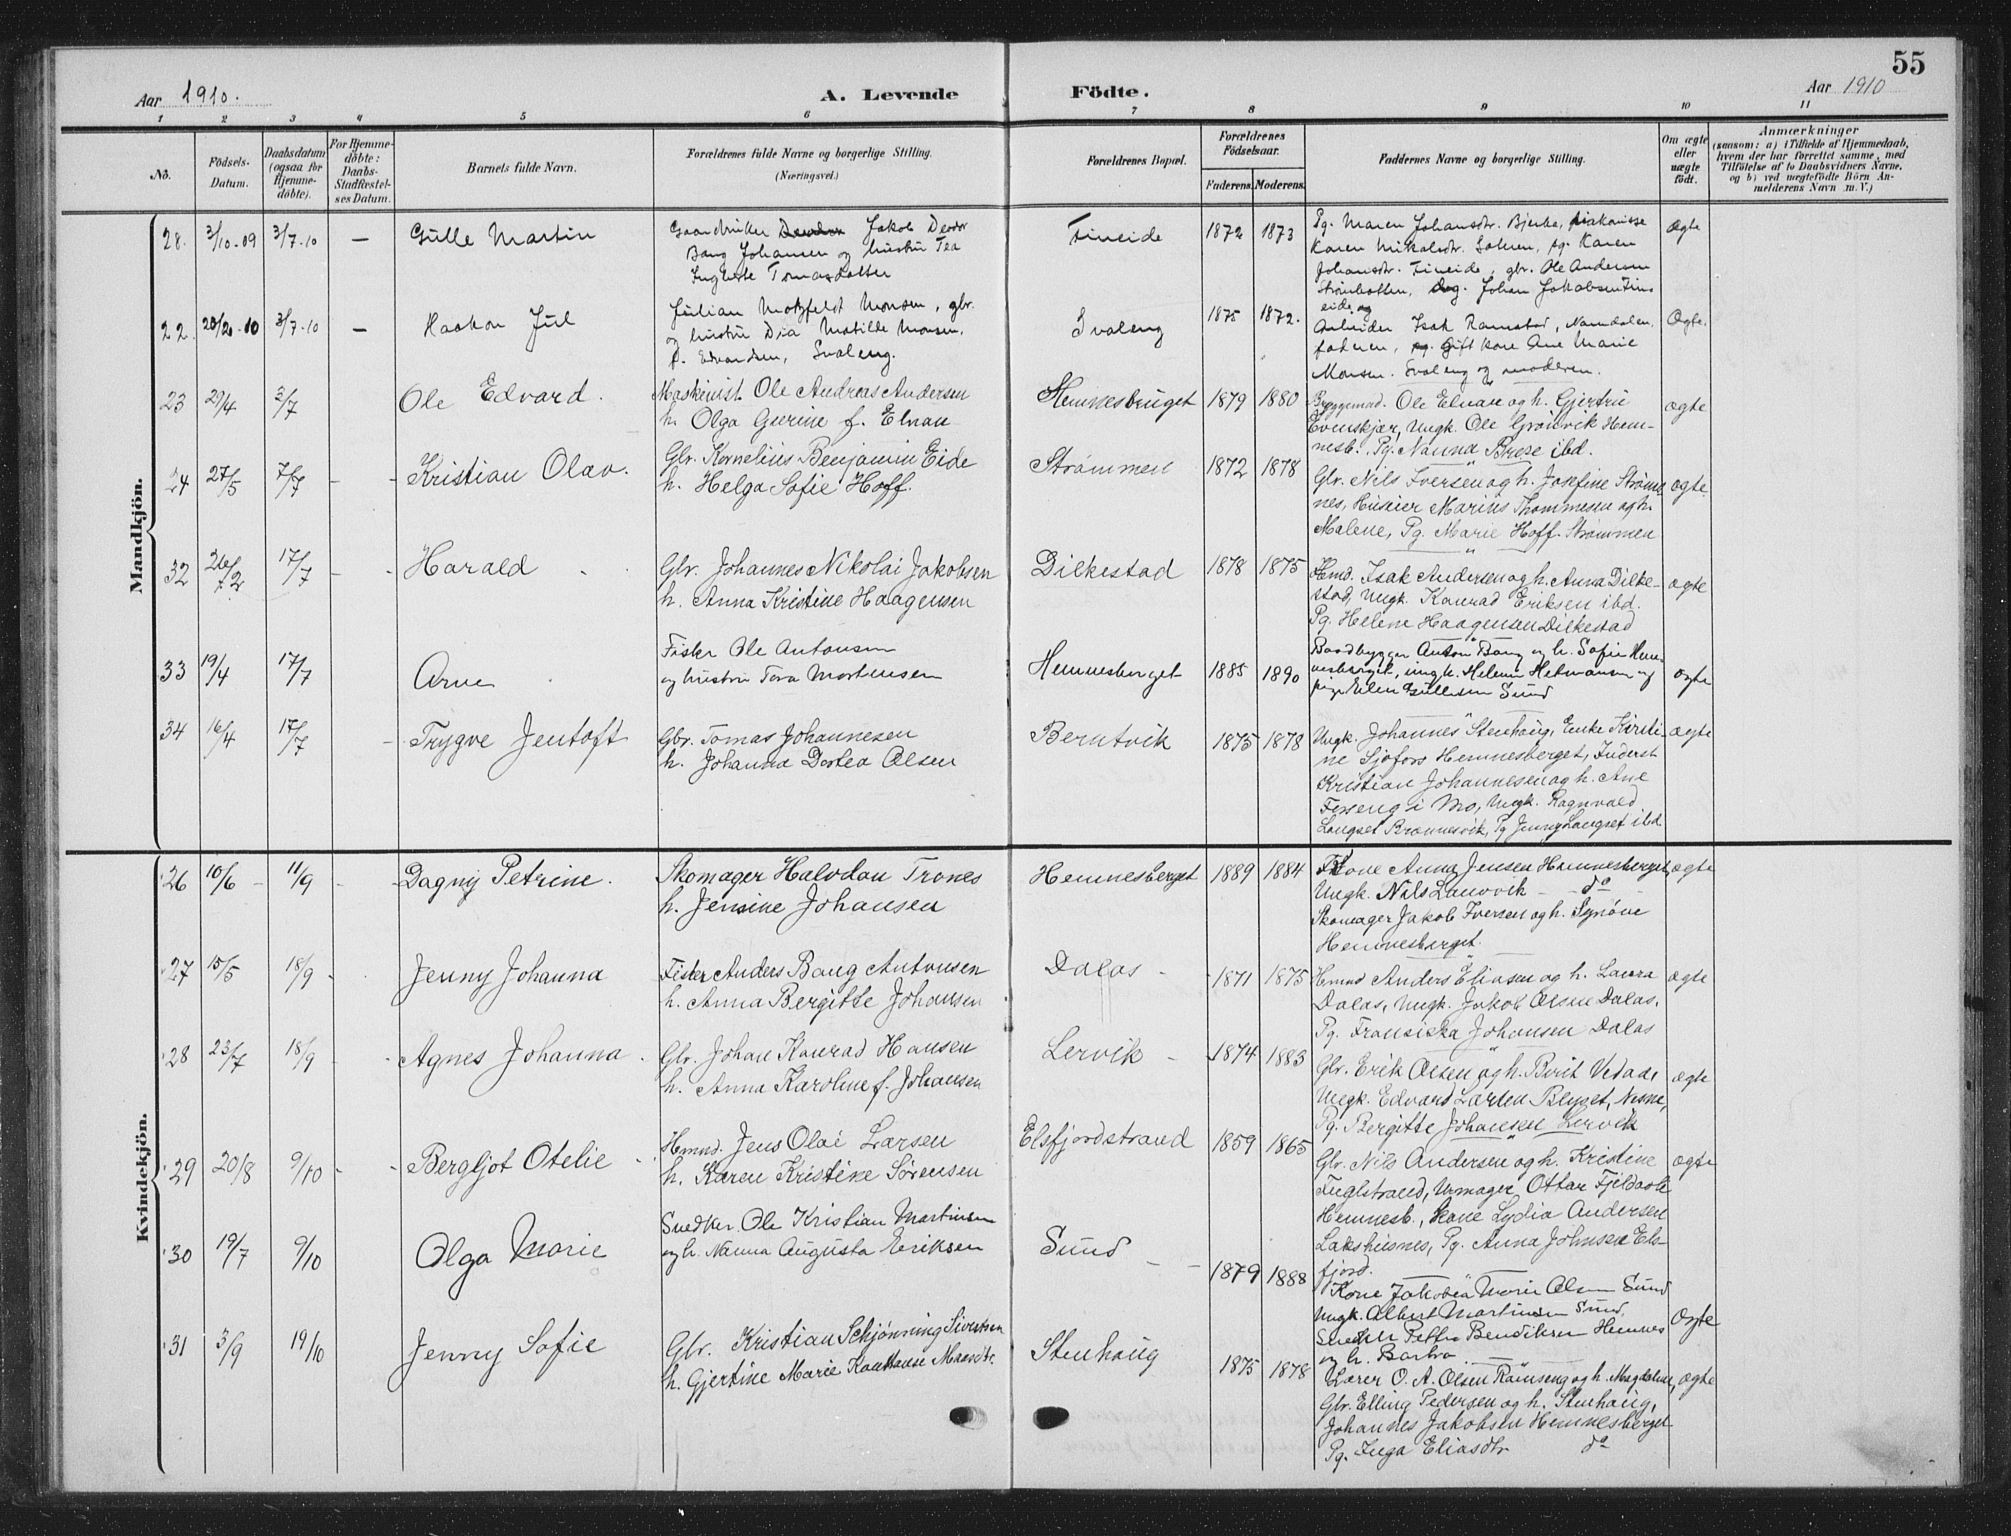 55
Aar 1910.
A. Levende
Födte.
Aar 1910
1 2 3 4 5 6 7 8 9 10 11
No.
Födsels-
Datum.
Daabsdatum
(ogsaa for
Hjemme-
döbte).
For Hjemme-
döbte:
Daabs-
Stadfæstel-
ses Datum.
Barnets fulde Navn.
Forældrenes fulde Navne og borgerlige Stilling.
(Næringsvei.)
Forældrenes Bopæl.
Forældrenes
Födselsaar.
Faderens. Moderens.
Faddernes Navne og borgerlige Stilling.
Om ægte
eller
uægte
födt.
Anmærkninger
(saasom: a) i Tilfælde af Hjemmedaab,
hvem der har forrettet samme, med
Tilföielse af to Daabsvidners Navne,
og b) ved uægtefödte Börn An-
melderens Navn m. V.)
Mandkjön.
28. 3/10-09 3/7-10 — Gulle Martin
Gaardbruker Jakob
Bang Johansen og hustru Tea
Ingberte Tomasdatter
Fineide 1872 1873
Pg. Maren Johansdr. Bjerka,
Karen Mikalsdr. Pg. Karen
Johansdr. Fineide, gbr. Ole Andersen
Johan
Ægte
22. 10 3/7-10 — Haakon Jul
Julian Motzfeldt Monsen, gbr.
og hustru Dia Matilde Monsen,
f. Edvardsen, Svaleng.
Svaleng 1875 1872.
Arbeider Isak Ramstad, Namdalen,
faderen, Gift kone Ane Marie
Monsen. Svaleng og moderen.
Ægte.
23 29/4 3/7 Ole Edvard.
Maskinist Ole Andreas Andersen
h. Olga Gurine f. Elvan
Hemnesberget 1879 1880
Ole Elvan og h. Gjertru
Evenskjær, Ungk. Ole Grønvik Hem-
nesb., Pg. Nanna Brese ibd.
ægte
24 27/5 7/7 - - Kristian Olav.
Gbr. Kornelius Benjamin Eide
h. Helga Sofie Hoff.
Strømmen 1872 1878
Gbr. Nils Iversen og h. Josefine Strøm-
nes, Huseier Marius Thommesen og h.
Malene, Pg. Marie Hoff Strømmen
ægte
32 17/7 - - Harald
Gbr. Johannes Nikolai Jakobsen
h. Anna Kristine Haagensen
Dilkestad 1878 1875
Hmd. Isak Andersen og h. Anna Dilke-
stad, Ungk. Konrad Eriksen ibd.
Pg. Helene Haagensen Dilkestad
ægte
33 19/4 17/7 Arne
Fisker Ole Antonsen
og hustru Tora Mortensen
Hemnesberget 1885 1890
Baadbygger Anton Bang og h. Sofie Hem-
nesberget, ungk. Helmer Hermansen og
pige Elen Gullesen Sund
ægte
34 16/4 17/7 - Trygve Jentoft
Gbr. Tomas Johannesen
h. Johanna Dortea Olsen
Berntvik 1875 1878
Ungk. Johannes Stenhaug, Enke Kirsti-
ne Sjøfors Hemnesberget, Inderst
Kristian Johannesen og h. Ane
i Mo, Ungk. Ragnvald
Langset Brannesvik, Pg Jenny Langset ibd.
ægte
Kvindekjön.
26 10/6 - 11/9 - - Dagny Petrine.
Skomager Halvdan Trones
h. Jensine Johansen
Hemnesberget 1889 1884
Kone Anna Jensen Hemnesberget,
Ungk. Nils Lauvvik - do -
Skomager Jakob Iversen og h. Synöve
Hemnesberget.
ægte
27 15/5 18/9 - - Jenny Johanna
Fisker Anders Bang Antonsen
h. Anna Bergitte Johansen
Dalas - - 1871 1875
Hmnd Anders Eliasen og h. Laura
Dalas, Ungk. Jakob Olsen Dalas,
Pg. Fransiska Johansen Dalas
ægte
28 23/7 18/9 - - Agnes Johanna.
Gbr. Johan Konrad Hansen
h. Anna Karoline f. Johansen
Lervik - 1874 1883
Gbr. Erik Olsen og h. Berit Vedaa,
Ungk. Edvard Larsen Nesne,
Pg. Bergitte Johansen Lervik
ægte
29 20/8 9/10 - - Bergljot Otelie -
Hmnd. Jens Olai Larsen
h. Karen Kristine Sørensen
Elsfjordstrand 1859 1865
Gbr. Nils Andersen og h. Kristine
Fuglstrand, Urmager Ottar Fjeldavli
Hemnesb., Kone Lydia Andersen
Lakshusnes, Pg. Anna Johnsen Els-
fjord.
ægte
30 19/7 9/10 Olga Marie
Snedker Ole Kristian Martinsen
og h. Nanna Augusta Eriksen
Sund - - 1879 1888
Kone Jakobea Marie Olsen Sund
Ungk. Albert Martinsen Sund,
Petter Bendiksen Hemnes
og h. Barbra
Ægte
31 3/9 19/10 Jenny Sofie
Gbr. Kristian Schjønning Sivertsen
h. Gjertine Marie
Stenhaug 1875 1878
Lærer O. A. Olsen Ramseng og h. Magdalene,
Gbr. Elling Pedersen og h. Stenhaug,
Johannes Jakobsen Hemnesberget
Pg. Inga Eliasdtr do
ægte